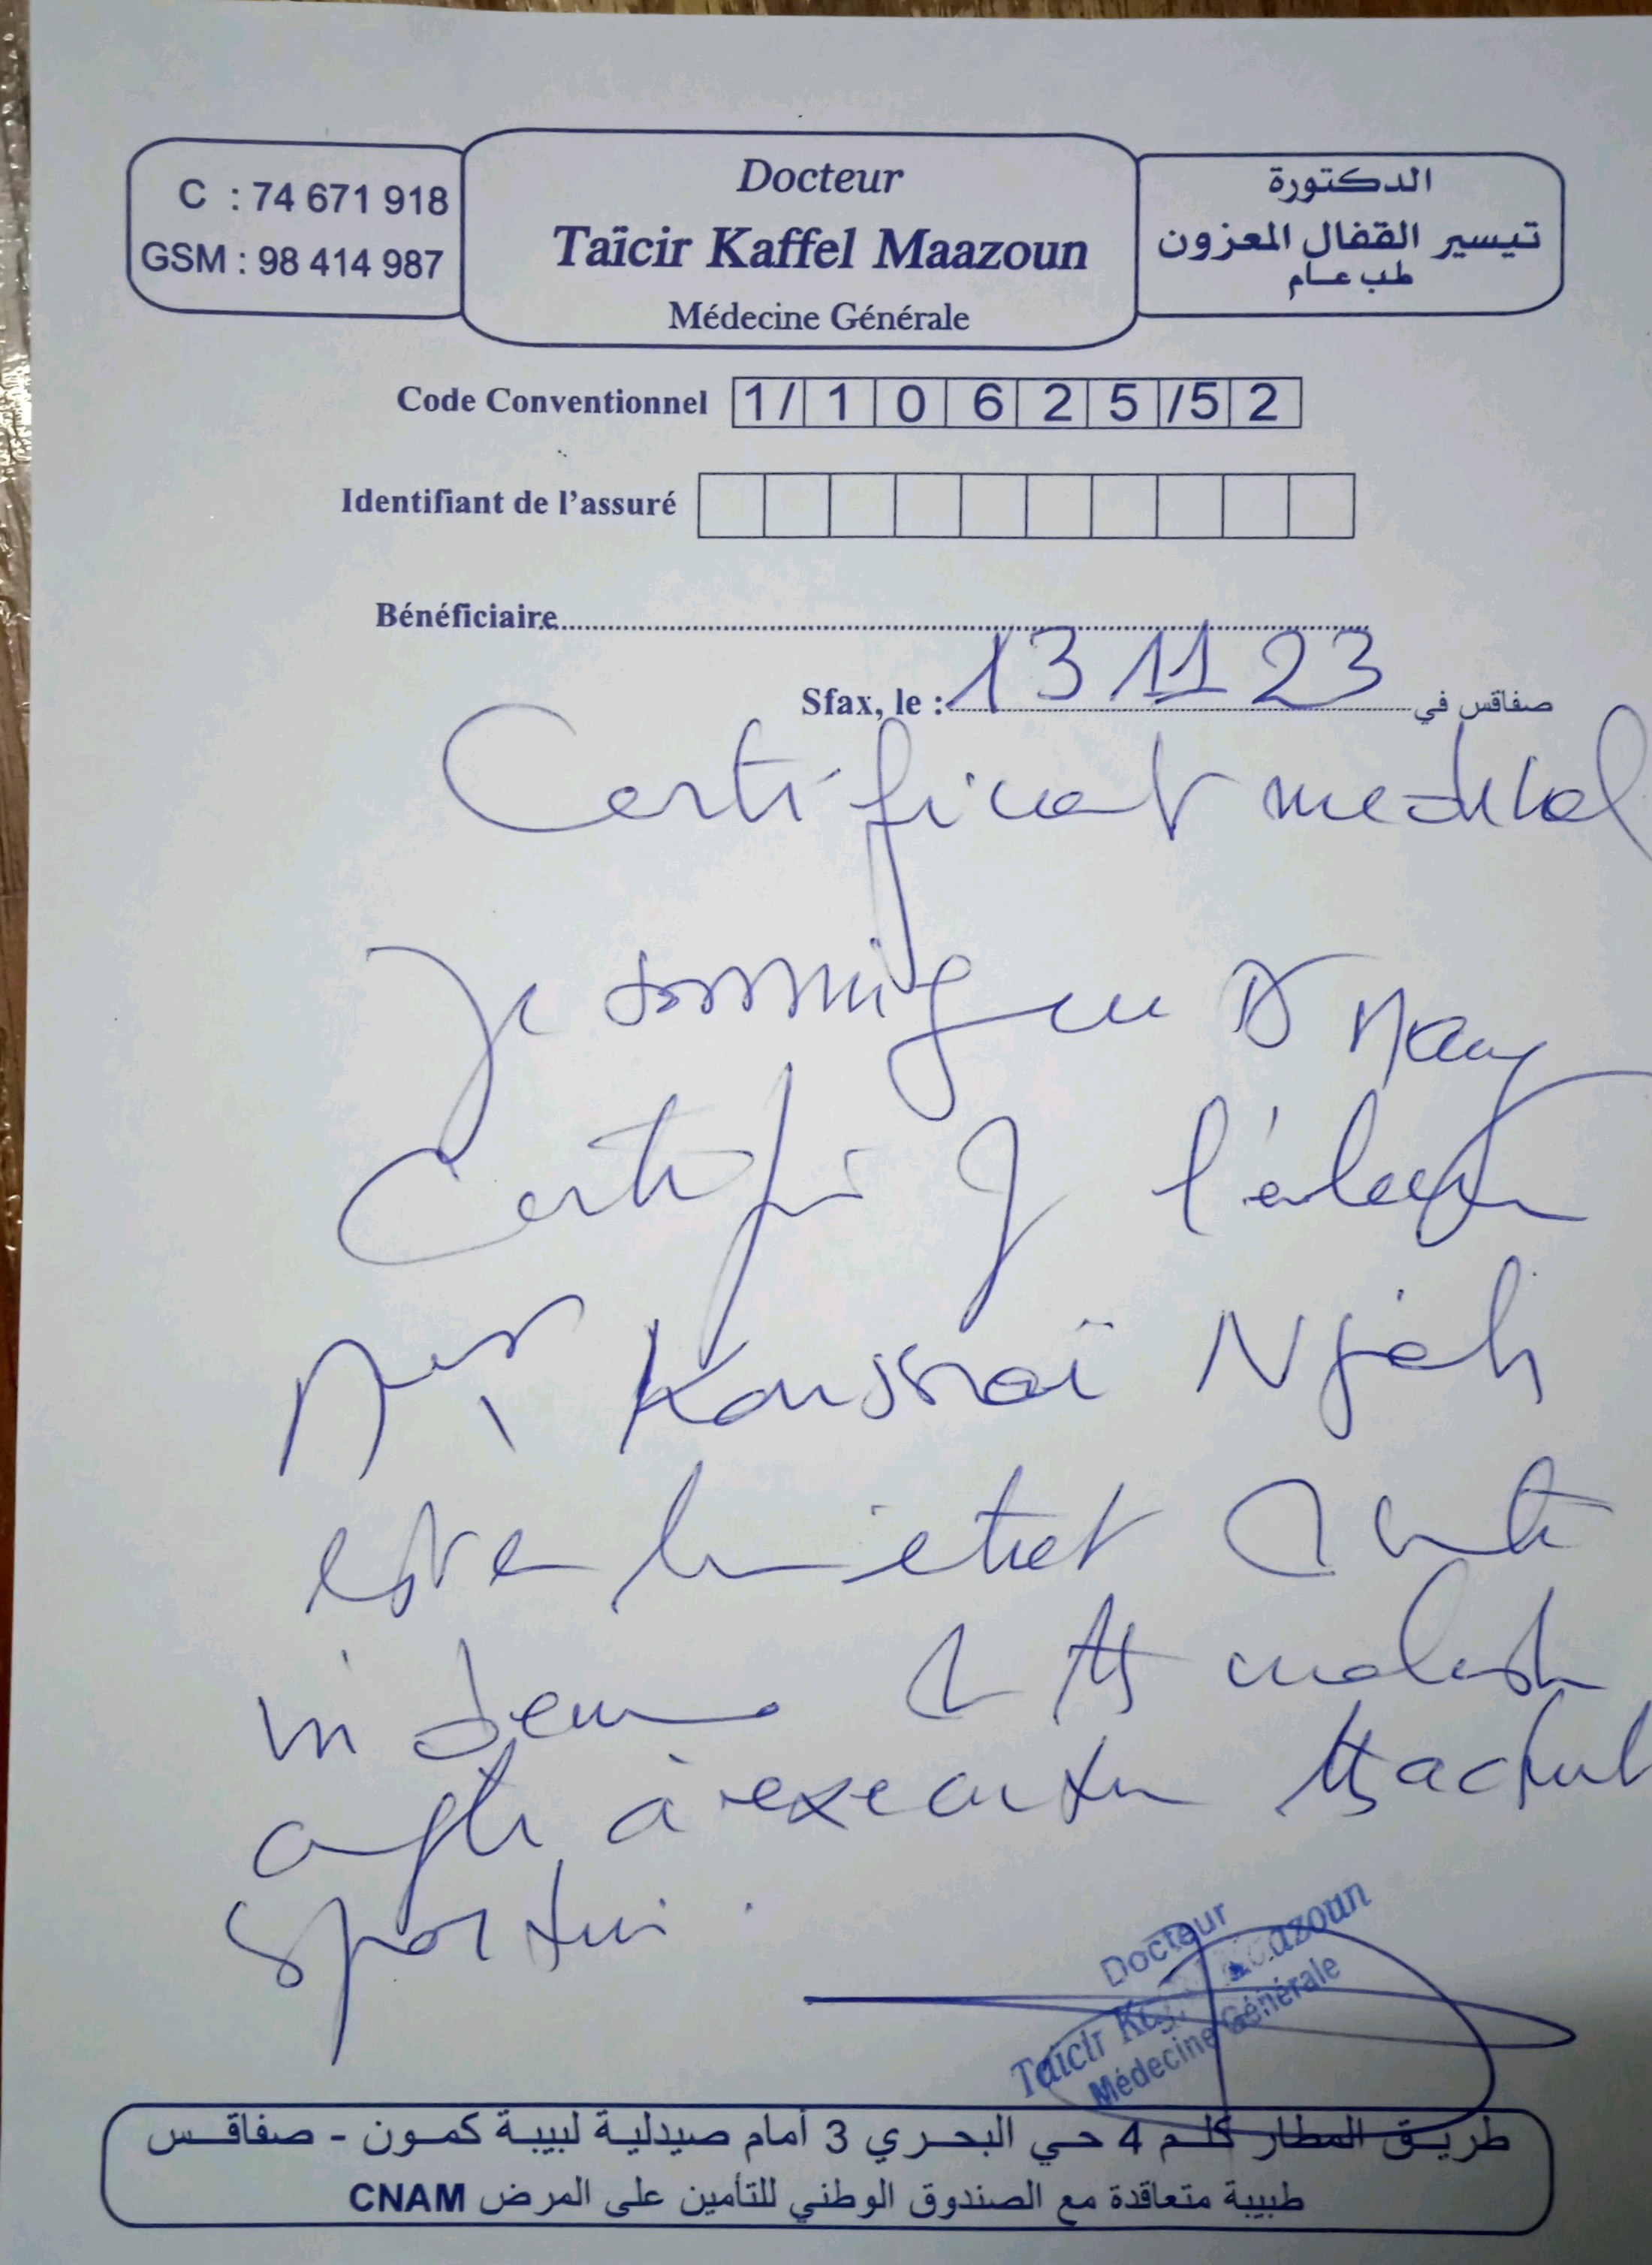 C : 74 671 918
GSM : 98 414 987
Docteur
Taïcir Kaffel Maazoun
Médecine Générale
الدكتورة
تيسير القفال المعزون
طب عام
Code Conventionnel 1/ 1 0 6 2 5 /5 2
Identifiant de l'assuré
Bénéficiaire
Sfax, le : 13 11 23 صفاقس في
Certificat medical
Je soussigné Dr
Certifie q l'
Koussaï Njah
est en bon état santé
indemne de tts maladie
apte à executer tts activité
sportive.
Docteur
Taïcir Kaffel Maazoun
Médecine Générale
طريق المطار كلم 4 حي البحري 3 أمام صيدلية لبيبة كمون - صفاقس
طبيبة متعاقدة مع الصندوق الوطني للتأمين على المرض CNAM